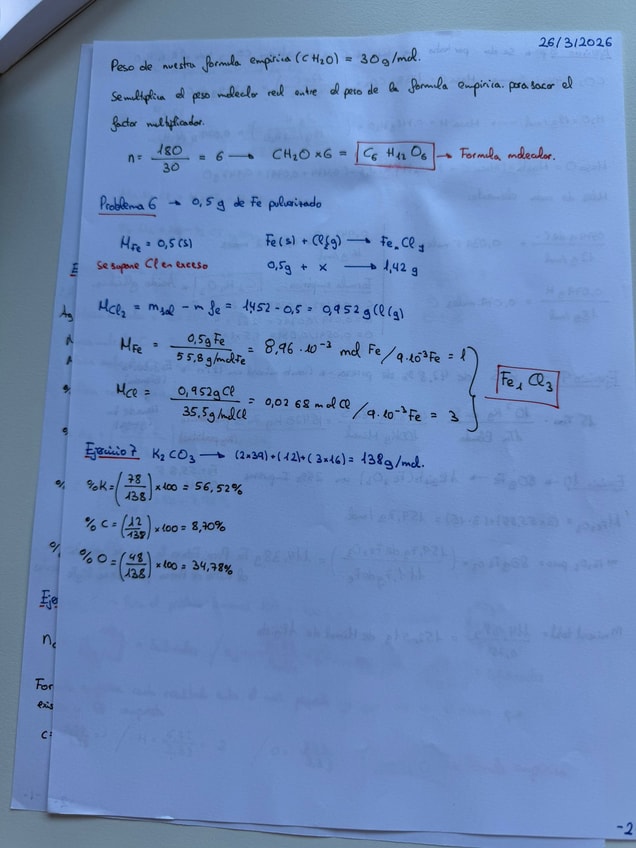 26/3/2026
Peso de nuestra formula empirica (CH2O) = 30 g/mol.
Se multiplica el peso molecular real entre el peso de la formula empirica para sacar el
factor multiplicador.
n = 180/30 = 6 → CH2O × 6 = C6 H12 O6 → Formula molecular.
Problema 6 → 0,5 g de Fe pulverizado
MFe = 0,5 (s) Fe(s) + Cl2(g) → Fex Cly
Se supone Cl en exceso 0,5g + x → 1,42 g
MCl2 = msol - m fe = 1452 - 0,5 = 0,952 g Cl (g)
MFe = 0,5g Fe / 55,8 g/mol Fe = 8,96 · 10⁻³ mol Fe / 9·10⁻³ Fe = 1
Fe1 Cl3
MCl = 0,952 g Cl / 35,5 g/mol Cl = 0,0268 mol Cl / 9·10⁻³ Fe = 3
Ejercicio 7 K2CO3 → (2×39)+(12)+(3×16) = 138 g/mol.
%K = (78/138) × 100 = 56,52%
% C = (12/138) × 100 = 8,70%
% O = (48/138) × 100 = 34,78%
Eje
For
exis
c=
-2